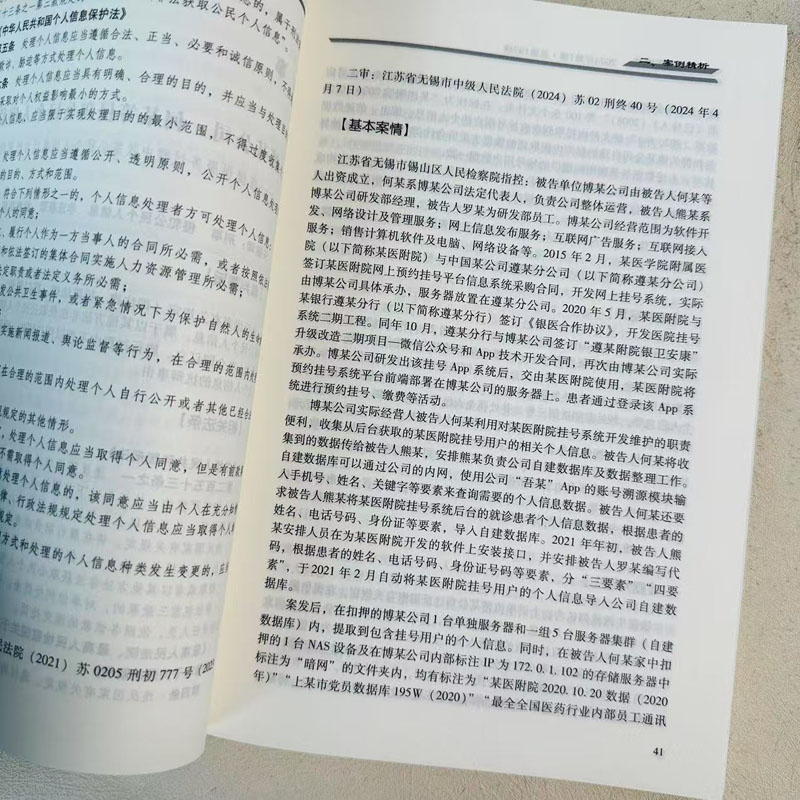 十三条之一第二款规定
法获取公民个人信息”。
《中华人民共和国个人信息保护法》
第五条 处理个人信息应当遵循合法、正当、必要和诚信原则，不得
欺诈、胁迫等方式处理个人信息。
条 处理个人信息应当具有明确、合理的目的，并应当与处理目的
采取对个人权益影响最小的方式。
个人信息，应当限于实现处理目的的最小范围，不得过度收集个
处理个人信息应当遵循公开、透明原则，公开个人信息处理
的目的、方式和范围。
符合下列情形之一的，个人信息处理者方可处理个人信息：
个人的同意；
、履行个人作为一方当事人的合同所必需，或者按照依法
和依法签订的集体合同实施人力资源管理所必需；
法定职责或者法定义务所必需；
发公共卫生事件，或者紧急情况下为保护自然人的生命
实施新闻报道、舆论监督等行为，在合理的范围内处
在合理的范围内处理个人自行公开或者其他已经合
规规定的其他情形。
，处理个人信息应当取得个人同意，但是有前款
不需取得个人同意。
处理个人信息的，该同意应当由个人在充分知
律、行政法规规定处理个人信息应当取得个人
规定。
方式和处理的个人信息种类发生变更的，应当
民法院（2021）苏 0205 刑初 777 号（202
二、案例精析
二审：江苏省无锡市中级人民法院（2024）苏 02 刑终 40 号（2024 年 4
月 7 日）
【基本案情】
江苏省无锡市锡山区人民检察院指控：被告单位博某公司由被告人何某等
人出资成立，何某系博某公司法定代表人，负责公司整体运营，被告人熊某系
博某公司研发部经理，被告人罗某为研发部员工。博某公司经营范围为软件开
发、网络设计及管理服务；网上信息发布服务；互联网广告服务；互联网接入
服务；销售计算机软件及电脑、网络设备等。2015 年 2 月，某医学院附属医
院（以下简称某医附院）与中国某公司遵义分公司（以下简称遵义分公司）
签订某医附院网上预约挂号平台信息系统采购合同，开发网上挂号系统，实际
由博某公司具体承办，服务器放置在遵义分公司。2020 年 5 月，某医附院与
某银行遵义分行（以下简称遵义分行）签订《银医合作协议》，开发医院挂号
系统二期工程。同年 10 月，遵义分行与博某公司签订“遵某附院银卫安康”
升级改造二期项目—微信公众号和 App 技术开发合同，再次由博某公司实际
承办。博某公司研发出该挂号 App 系统后，交由某医附院使用，某医附院将
预约挂号系统平台前端部署在博某公司的服务器上。患者通过登录该 App 系
统进行预约挂号、缴费等活动。
博某公司实际经营人被告人何某利用对某医附院挂号系统开发维护的职责
便利，收集从后台获取的某医附院挂号用户的相关个人信息。被告人何某将收
集到的数据传给被告人熊某，安排熊某负责公司自建数据库及数据整理工作。
自建数据库可以通过公司的内网，使用公司“吾某” App 的账号溯源模块输
入手机号、姓名、关键字等要素来查询需要的个人信息数据。被告人何某还要
求被告人熊某将某医附院挂号系统后台的就诊患者个人信息数据，根据患者的
姓名、电话号码、身份证等要素，导入自建数据库。2021 年年初，被告人熊
某安排人员在为某医附院开发的软件上安装接口，并安排被告人罗某编写代
码，根据患者的姓名、电话号码、身份证号码等要素，分“三要素”“四要
素”，于 2021 年 2 月自动将某医附院挂号用户的个人信息导入公司自建数
据库。
案发后，在扣押的博某公司 1 台单独服务器和一组 5 台服务器集群（自建
数据库）内，提取到包含挂号用户的个人信息。同时，在被告人何某家中扣
押的 1 台 NAS 设备及在博某公司内部标注 IP 为 172. 0. 1. 102 的存储服务器中
标注为“暗网”的文件夹内，均有标注为“某医附院 2020. 10. 20 数据（2020
年）”“上某市党员数据库 195W（2020）”“最全全国医药行业内部员工通讯
41